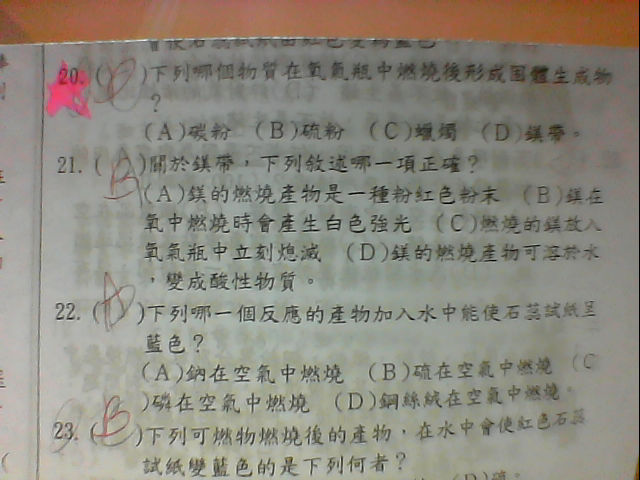 20.( )下列哪個物質在氧氣瓶中燃燒後形成固體生成物
?
(A)碳粉 (B)硫粉 (C)蠟燭 (D)鎂帶。
21.( B )關於鎂帶,下列敘述哪一項正確?
(A)鎂的燃燒產物是一種粉紅色粉末 (B)鎂在
氧中燃燒時會產生白色強光 (C)燃燒的鎂放入
氧氣瓶中立刻熄滅 (D)鎂的燃燒產物可溶於水
,變成酸性物質。
22.( A )下列哪一個反應的產物加入水中能使石蕊試紙呈
藍色?
(A)鈉在空氣中燃燒 (B)硫在空氣中燃燒 (C
)磷在空氣中燃燒 (D)鋼絲絨在空氣中燃燒。
23.( B )下列可燃物燃燒後的產物,在水中會使紅色石蕊
試紙變藍色的是下列何者?